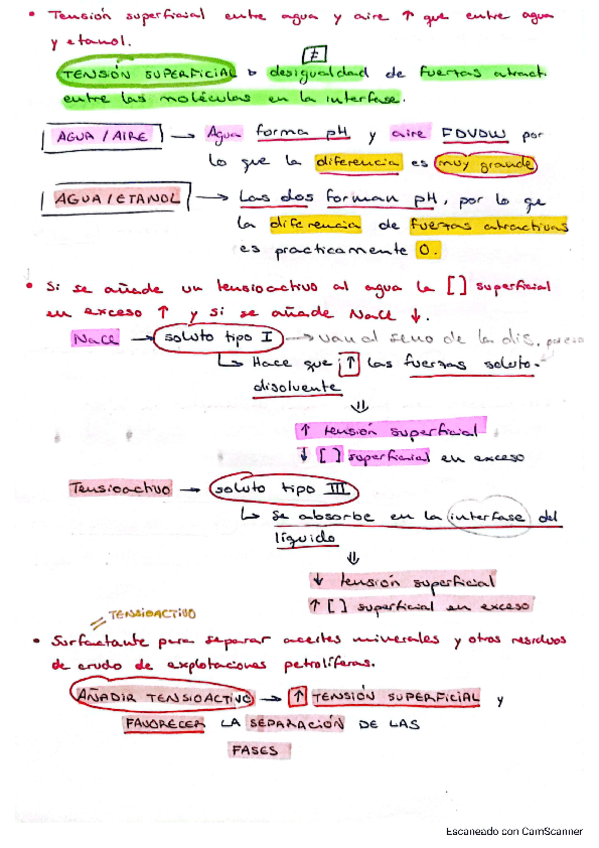 • Tensión superficial entre agua y aire ↑ que entre agua
y etanol.
≠
TENSIÓN SUPERFICIAL → desigualdad de fuerzas atract.
entre las moléculas en la interfase.
AGUA / AIRE → Agua forma pH y aire FDVDW por
lo que la diferencia es muy grande
AGUA / ETANOL → Las dos forman pH, por lo que
la diferencia de fuerzas atractivas
es practicamente 0.
• Si se añade un tensioactivo al agua la [ ] superficial
en exceso ↑ y si se añade NaCl ↓.
NaCl → soluto tipo I → van al seno de la dis.
↳ Hace que ↑ las fuerzas soluto-
disolvente
⇓
↑ tensión superficial
↓ [ ] superficial en exceso
Tensioactivo → soluto tipo III
↳ Se absorbe en la interfase del
líquido
⇓
↓ tensión superficial
↑ [ ] superficial en exceso
= TENSIOACTIVO
• Surfactante para separar aceites minerales y otros residuos
de crudo de explotaciones petrolíferas.
AÑADIR TENSIOACTIVO → ↑ TENSIÓN SUPERFICIAL y
FAVORECER LA SEPARACIÓN DE LAS
FASES
Escaneado con CamScanner